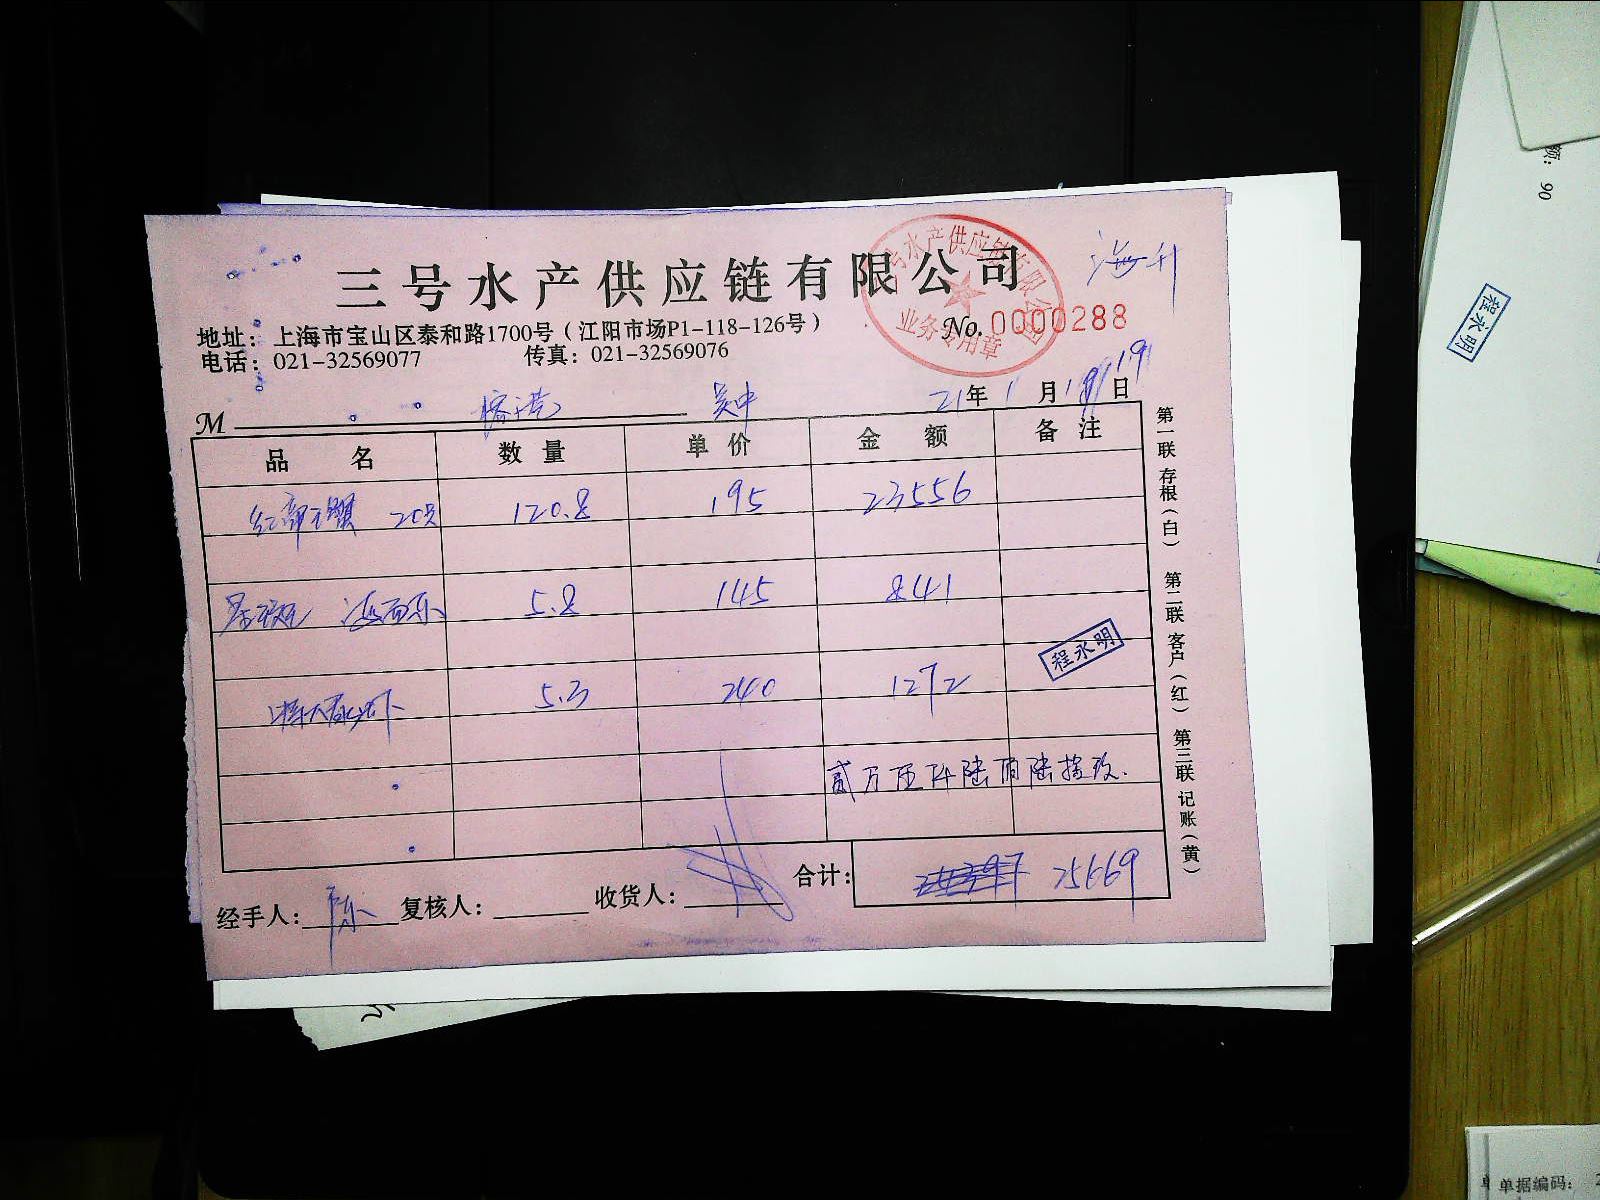 三号水产供应链有限公司
海升
地址：上海市宝山区泰和路1700号（江阳市场P1-118-126号）
No. 0000288
电话：021-32569077 传真：021-32569076
三号水产供应链有限公司
业务专用章
M 吴中 21年1月19日
品名 数量 单价 金额 备注
20只 120.8 195 23556
5.8 145 841
5.3 240 1272
程永明
贰万伍仟陆佰陆拾玖.
合计： 25669
经手人：陈 复核人： 收货人：
第一联 存根（白） 第二联 客户（红） 第三联 记账（黄）
额：90
程永明
单据编码：